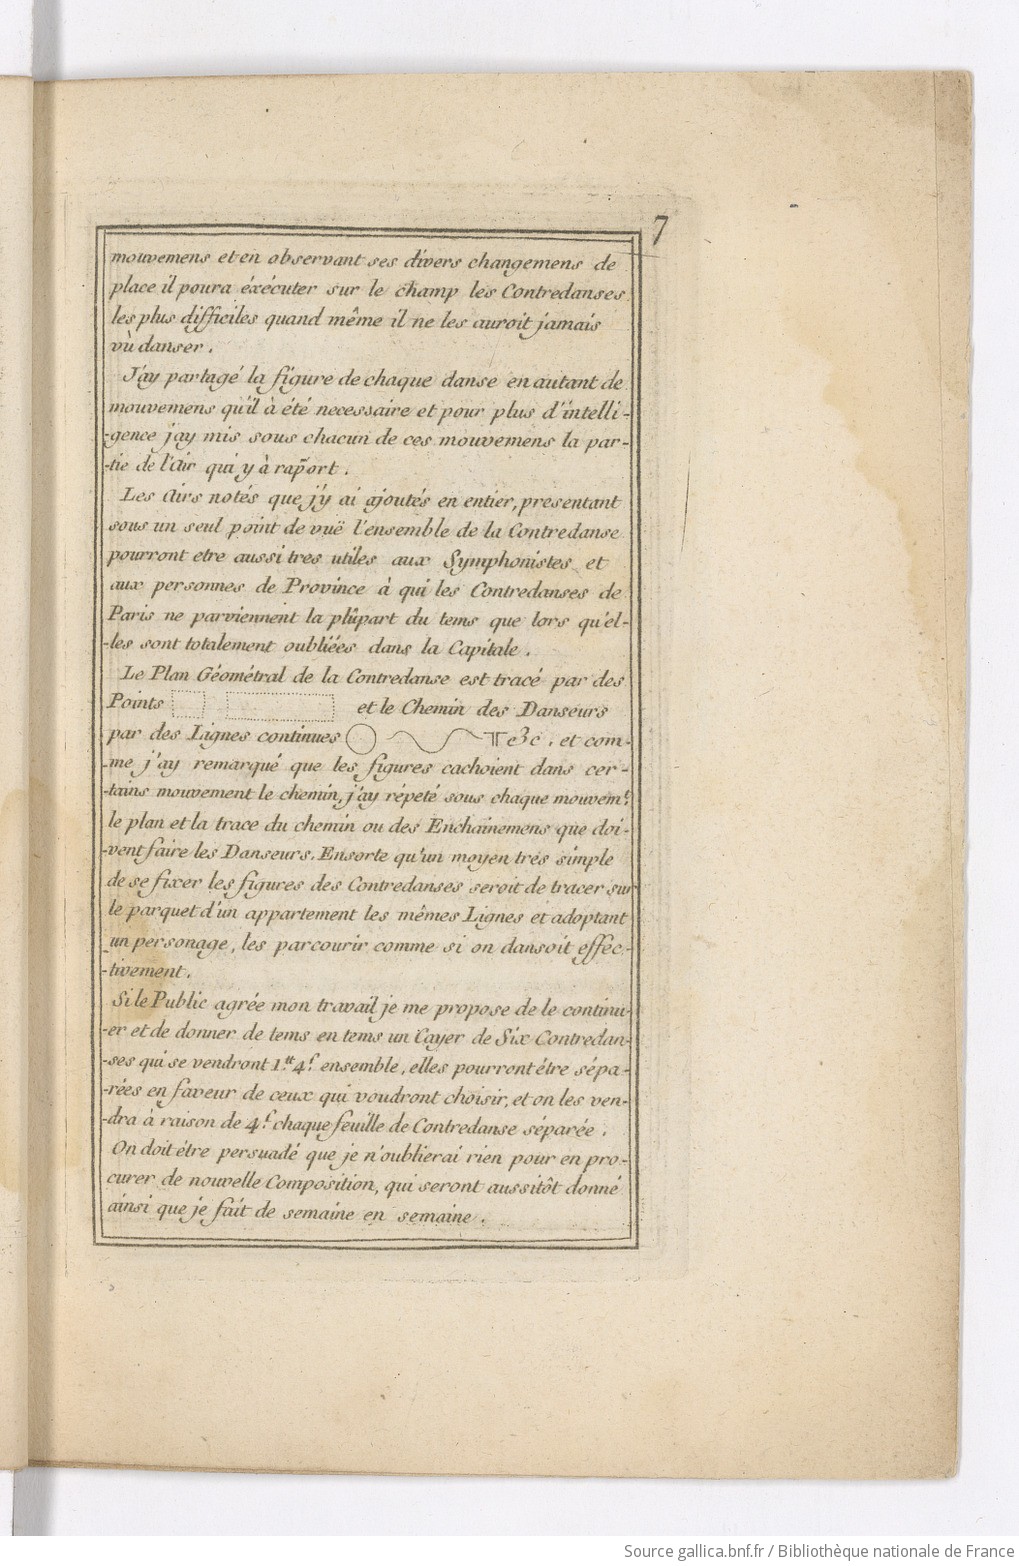 7
mouvemens et en observant ses divers changemens de
place il poura éxécuter sur le champ les Contredanses
les plus difficiles quand même il ne les auroit jamais
vû danser.
J'ay partagé la figure de chaque danse en autant de
mouvemens qu'il à été necessaire et pour plus d'intelli-
-gence j'ay mis sous chacun de ces mouvemens la par-
-tie de l'Air qui y à raport.
Les Airs notés que j'y ai ajoutés en entier, presentant
sous un seul point de vuë l'ensemble de la Contredanse
pourront etre aussi tres utiles aux Symphonistes et
aux personnes de Province à qui les Contredanses de
Paris ne parviennent la plûpart du tems que lors qu'el-
-les sont totalement oubliées dans la Capitale.
Le Plan Géométral de la Contredanse est tracé par des
Points et le Chemin des Danseurs
par des Lignes continues &c. et com-
-me j'ay remarqué que les figures cachoient dans cer-
-tains mouvement le chemin, j'ay répeté sous chaque mouvem.t
le plan et la trace du chemin ou des Enchainemens que doi-
-vent faire les Danseurs. Ensorte qu'un moyen trés simple
de se fixer les figures des Contredanses seroit de tracer sur
le parquet d'un appartement les mêmes Lignes et adoptant
un personage, les parcourir comme si on dansoit effec-
-tivement.
Si le Public agrée mon travail je me propose de le continu-
-er et de donner de tems en tems un Cayer de Six Contredan-
-ses qui se vendront 1.tt 4.s ensemble, elles pourront étre sépa-
-rées en faveur de ceux qui voudront choisir, et on les ven-
-dra à raison de 4.s chaque feuille de Contredanse séparée.
On doit étre persuadé que je n'oublierai rien pour en pro-
curer de nouvelle Composition, qui seront aussitôt donné
ainsi que je fait de semaine en semaine.
Source gallica.bnf.fr / Bibliothèque nationale de France